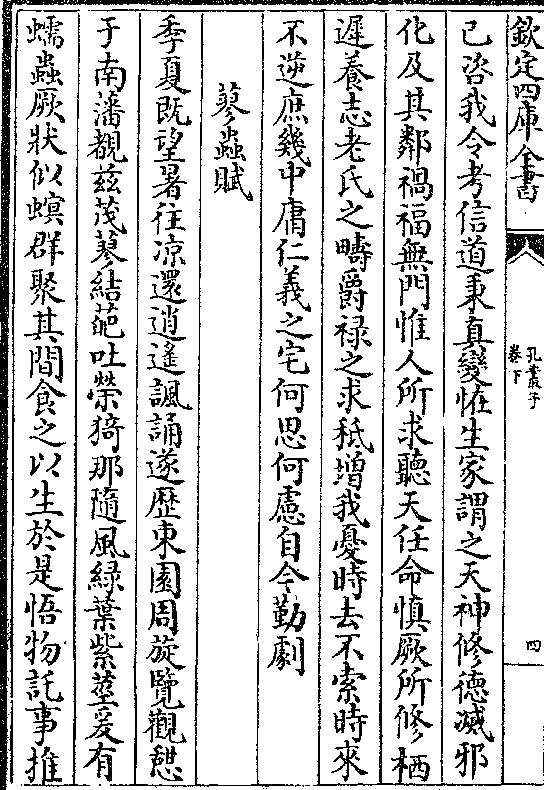 欽定四庫全書
孔叢子
卷下
四
已咨我令考信道秉真變恠生家謂之天神修德滅邪
化及其鄰禍福無門惟人所求聽天任命慎厥所修栖
遲養志老氏之疇爵禄之求秪增我憂時去不索時來
不逆庶幾中庸仁義之宅何思何慮自今勤劇
蓼蟲賦
季夏既望暑往凉還逍遙諷誦遂歴東園周旋覽觀憇
于南藩觀兹茂蓼結葩吐榮猗那隨風緑葉紫莖爰有
蠕蟲厥狀似螟群聚其間食之以生於是悟物託事推